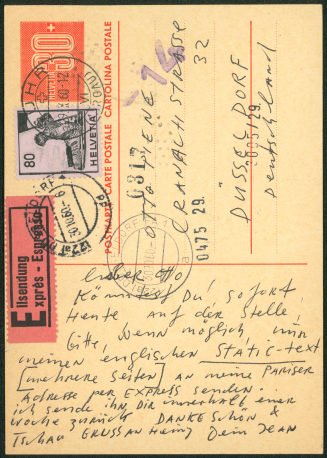 30+
POSTKARTE CARTE POSTALE CARTOLINA POSTALE
80
HELVETIA
Eilsendung
Exprès - Espresso
E
OTTO PIENE
CRANACHSTRASSE
32
DÜSSELDORF
Deutschland
0317
0475 29.
0051 29.
Lieber Otto
Könntest Du, sofort,
Heute auf der Stelle
Bitte, wenn möglich, mir
meinen englischen STATIC-text
(mehrere Seiten) an meine PARISER
Adresse per EXPRESS senden.
ich sende ihn Dir innerhalb einer
woche zurück DANKE SCHÖN &
Tschau GRUSS AN Heinz Dein JEAN